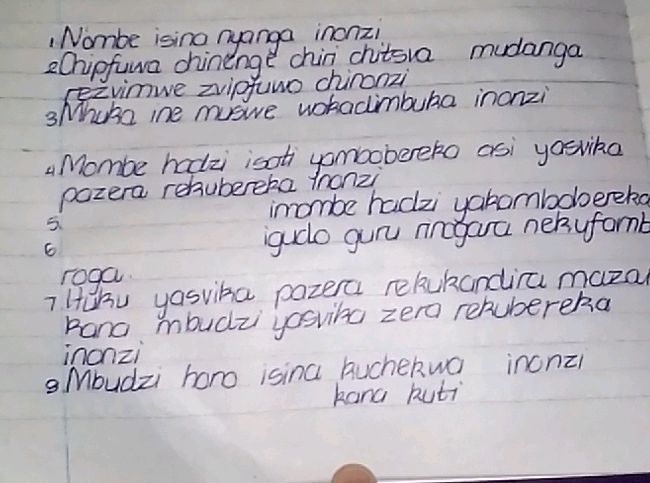 1. Nombe isina nyanga inonzi
2 Chipfuwa chinenge chiri chitsva mudanga
rezvimwe zvipfuwo chinonzi
3 Mhuka ine muswe wakadimbuka inonzi
4 Mombe hadzi isati yamboobereka asi yasvika
pazera rekubereka inonzi
5. imombe hadzi yakambobobereka
6 igudo guru rinogara nekufamb
roga.
7 Huku yasvika pazera rekukandira mazai
kana mbudzi yasvika zera rekubereka
inonzi
8 Mbudzi hono isina kuchekwa inonzi
kana kuti